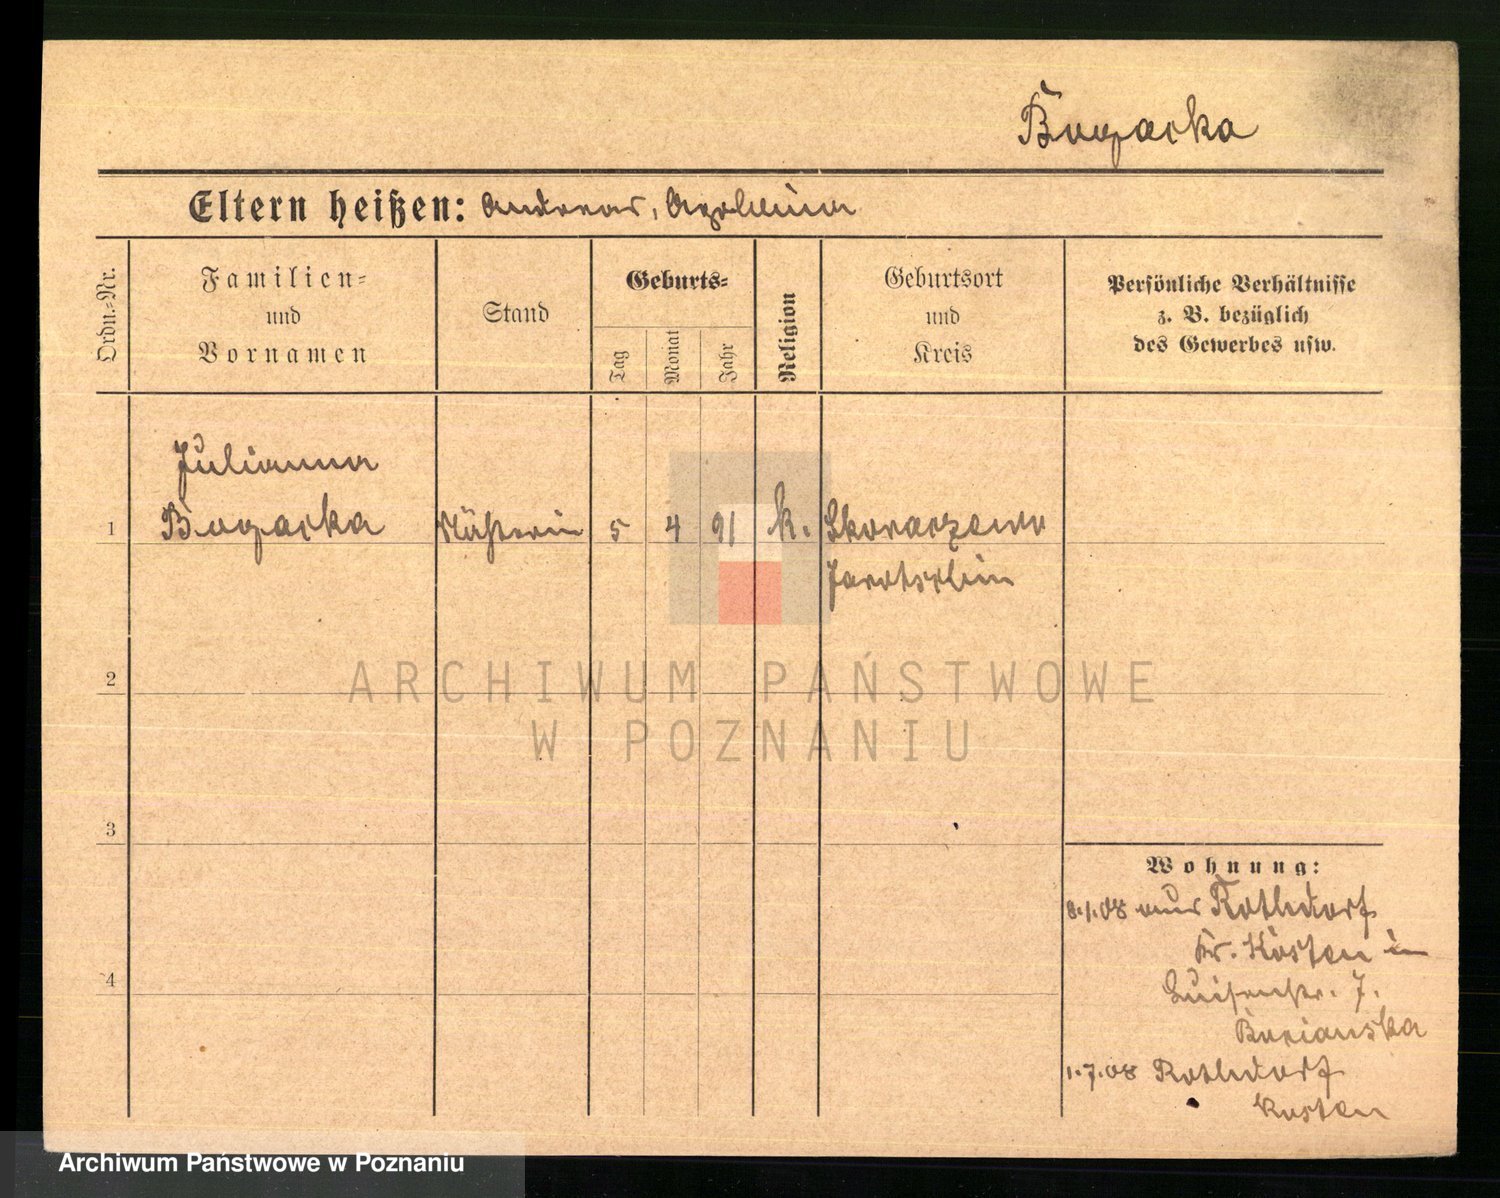 Bogacka
Eltern heißen: Andreas, Apolonia
Ordn.-Nr.
Familien-
und
Vornamen
Stand
Geburts-
Tag
Monat
Jahr
Religion
Geburtsort
und
Kreis
Persönliche Verhältnisse
z. B. bezüglich
des Gewerbes usw.
Julianna
1 Bogacka Nähterin 5 4 91 k. Skoraczewo
Jarotschin
2
ARCHIWUM PAŃSTWOWE
W POZNANIU
3
Wohnung:
8.1.08 aus Rothdorf
Kr. Kosten in
4
Luisenstr. 7.
1.7.08 Rothdorf
Kosten
Archiwum Państwowe w Poznaniu